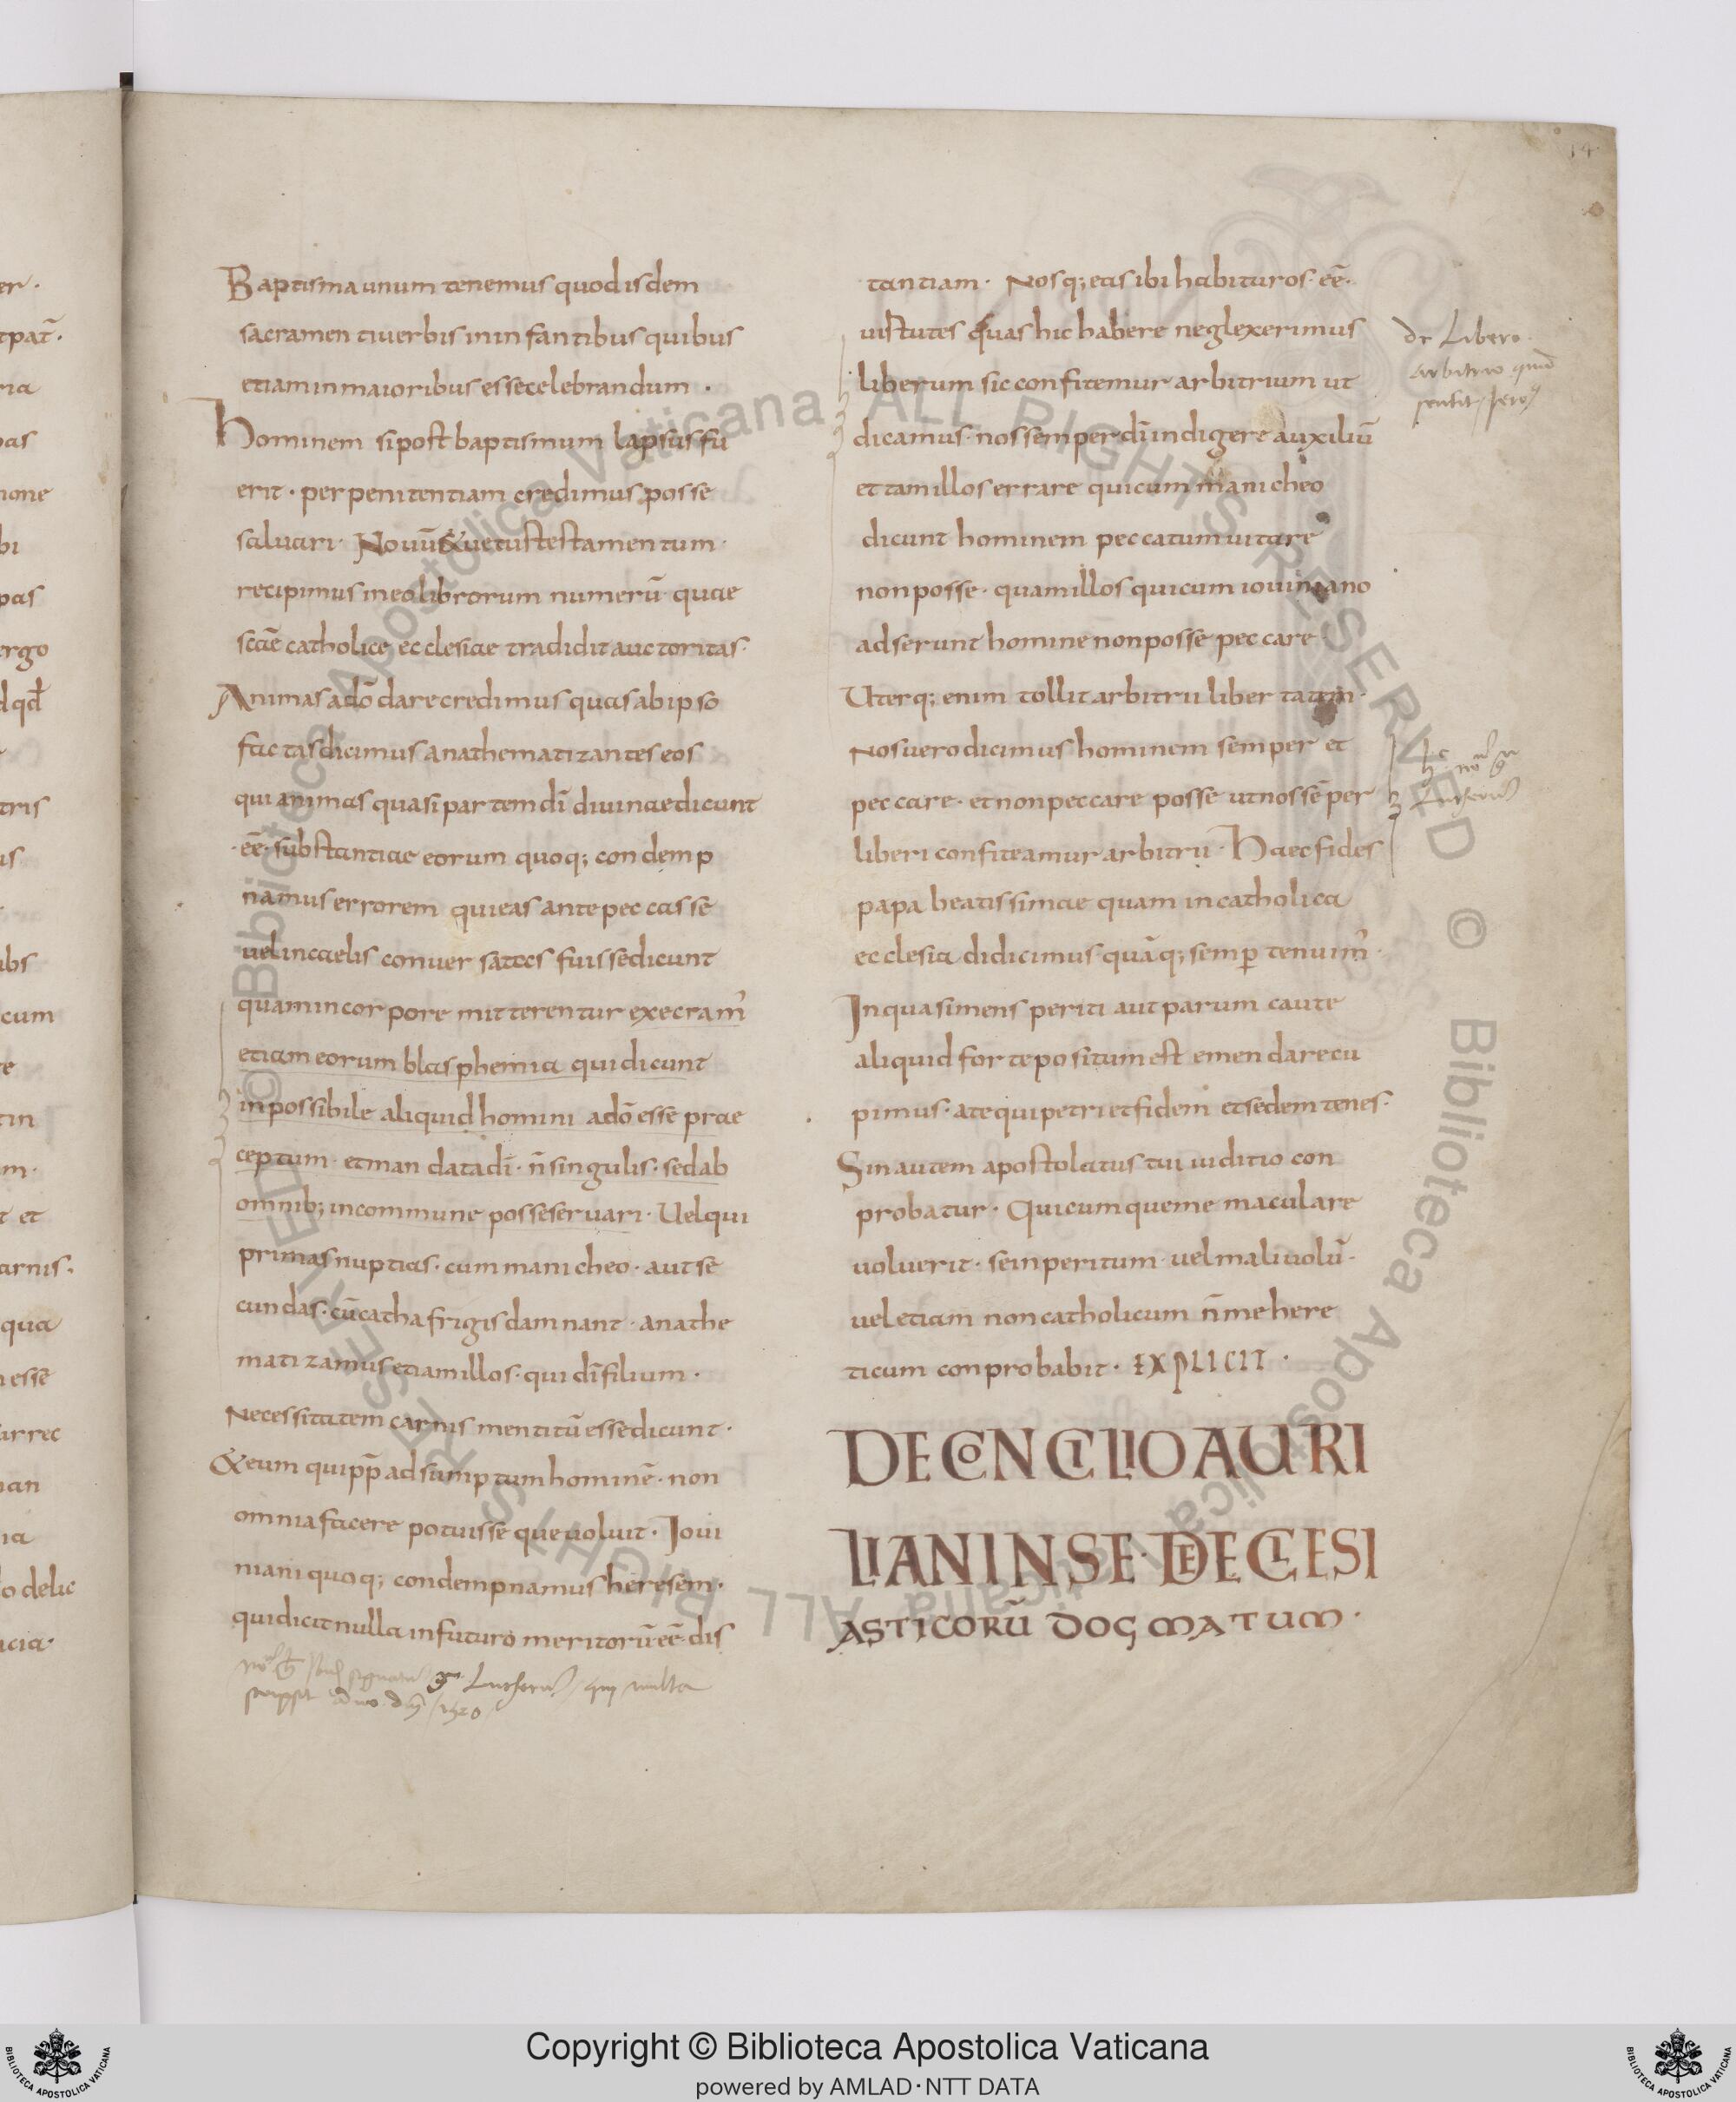 14
Baptisma unum tenemus quod isdem
sacramenti verbis in infantibus quibus
etiam in maioribus esse celebrandum ·
Hominem si post baptismum lapsus fu
erit · per penitentiam credimus posse
saluari · Nouū & uetus testamentum ·
recipimus in eo librorum numerū quae
scāe catholice ecclesiae tradidit auctoritas ·
Animas a dō dare credimus quas ab ipso
factas dicimus anathematizantes eos
qui animas quasi partem dī diuinae dicunt
· eē · substantiae eorum quoq; condemp
namus errorem qui eas ante peccasse
uel in caelis conuersatas fuisse dicunt
quam in corpore mitterentur execram'
etiam eorum blasphemia qui dicunt
inpossibile aliquid homini a dō esse prae
ceptum · et mandata dī · n̄ singulis · sed ab
omnib; in commune posse seruari · Uel qui
primas nuptias · cum manicheo · aut se
cundas · cū catha frigis damnant · anathe
matizamus etiam illos · qui dī filium ·
Necessitatem carnis mentitū esse dicunt ·
& eum quipp̄ adsumptum hominē · non
omnia facere potuisse que uoluit · Ioui
niani quoq; condempnamus heresem ·
qui dicit nulla in futuro meritorū eē · dis
Lutherū qui multa
scripsit 1520
tantiam · Nosq; eas ibi habituros · eē ·
uistutes quas hic habere neglexerimus
liberum sic confitemur arbitrium ut
dicamus · nos semper dī indigere auxiliū
et tam illos errare qui cum manicheo
dicunt hominem peccatum uitare
non posse · quam illos qui cum iouiniano
adserunt homine non posse peccare ·
Uterq; enim tollit arbitrii libertatem ·
Nos uero dicimus hominem semper et
peccare · et non peccare posse ut nos sēper
liberi confiteamur arbitrii · Haec fides
papa beatissimae quam in catholica
ecclesia didicimus quāq; semp̄ tenuim' ·
In qua si mens periti aut parum caute
aliquid forte positum est emendare cu
pimus · a te qui petri et fidem et sedem tenes ·
Sin autem apostolatus tui iuditio con
probatur · Quicumque me maculare
uoluerit · semperitum · uel maliuolū ·
uel etiam non catholicum n̄ me here
ticum conprobabit · EXPLICIT ·
DE CONCILIO AURI
LIANINSE · DE ECLESI
ASTICORŪ DOGMATUM ·
de Libero
arbitrio quid
sentit
Lutherū
© Biblioteca Apostolica Vaticana ALL RIGHTS RESERVED © Biblioteca Apostolica Vaticana ALL RIGHTS RESERVED
Copyright © Biblioteca Apostolica Vaticana
powered by AMLAD·NTT DATA
BIBLIOTECA APOSTOLICA VATICANA
BIBLIOTECA APOSTOLICA VATICANA